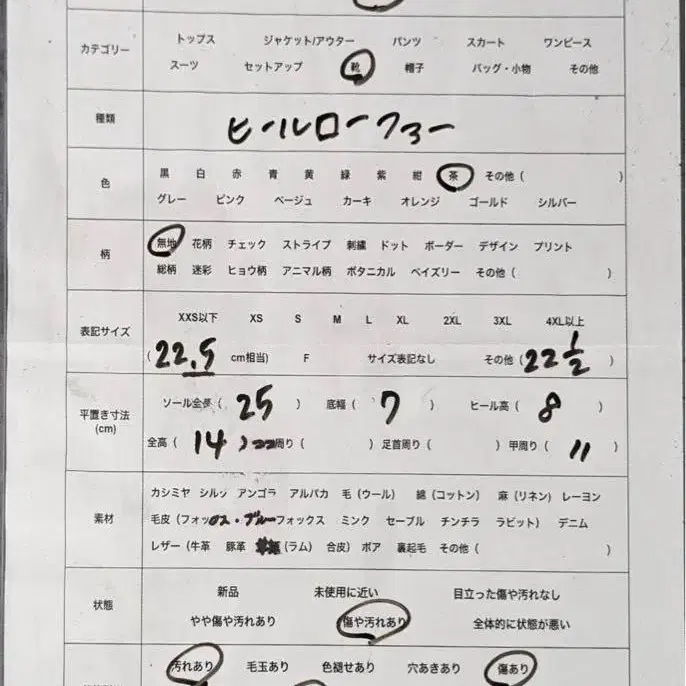 カテゴリー
トップス ジャケット/アウター パンツ スカート ワンピース
スーツ セットアップ 靴 帽子 バッグ・小物 その他
種類
ヒールローファー
色
黒 白 赤 青 黄 緑 紫 紺 茶 その他( )
グレー ピンク ベージュ カーキ オレンジ ゴールド シルバー
柄
無地 花柄 チェック ストライプ 刺繍 ドット ボーダー デザイン プリント
総柄 迷彩 ヒョウ柄 アニマル柄 ボタニカル ペイズリー その他( )
表記サイズ
XXS以下 XS S M L XL 2XL 3XL 4XL以上
(22.5 cm相当) F サイズ表記なし その他(22 1/2)
平置き寸法
(cm)
ソール全長( 25 ) 底幅( 7 ) ヒール高( 8 )
全高( 14 ) 周り( ) 足首周り( ) 甲周り( 11 )
素材
カシミヤ シルク アンゴラ アルパカ 毛(ウール) 綿(コットン) 麻(リネン) レーヨン
毛皮(フォックス・ブルーフォックス ミンク セーブル チンチラ ラビット) デニム
レザー(牛革 豚革 (ラム) 合皮) ボア 裏起毛 その他( )
状態
新品 未使用に近い 目立った傷や汚れなし
やや傷や汚れあり 傷や汚れあり 全体的に状態が悪い
汚れあり 毛玉あり 色褪せあり 穴あきあり 傷あり